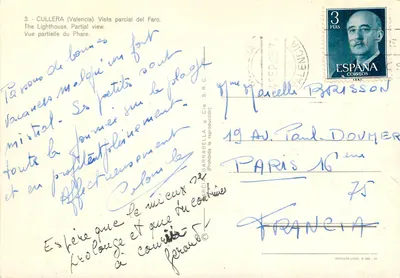 3 - CULLERA (Valencia) Vista parcial del Faro.
The Lighthouse. Partial view.
Vue partielle du Phare.
Passons de bonnes
vacances malgré un fort
mistral. Les petits sont
toute la journée sur la plage
et en profitent pleinement.
Affectueusement
Colombe
Espère que le mieux se
prolonge et que tu continues
à courir
Gérard
3
PTAS
ESPAÑA
CORREOS
Mme Marcelle BRISSON
19 Av. Paul-DOUMER
PARIS 16ème
75
FRANCIA